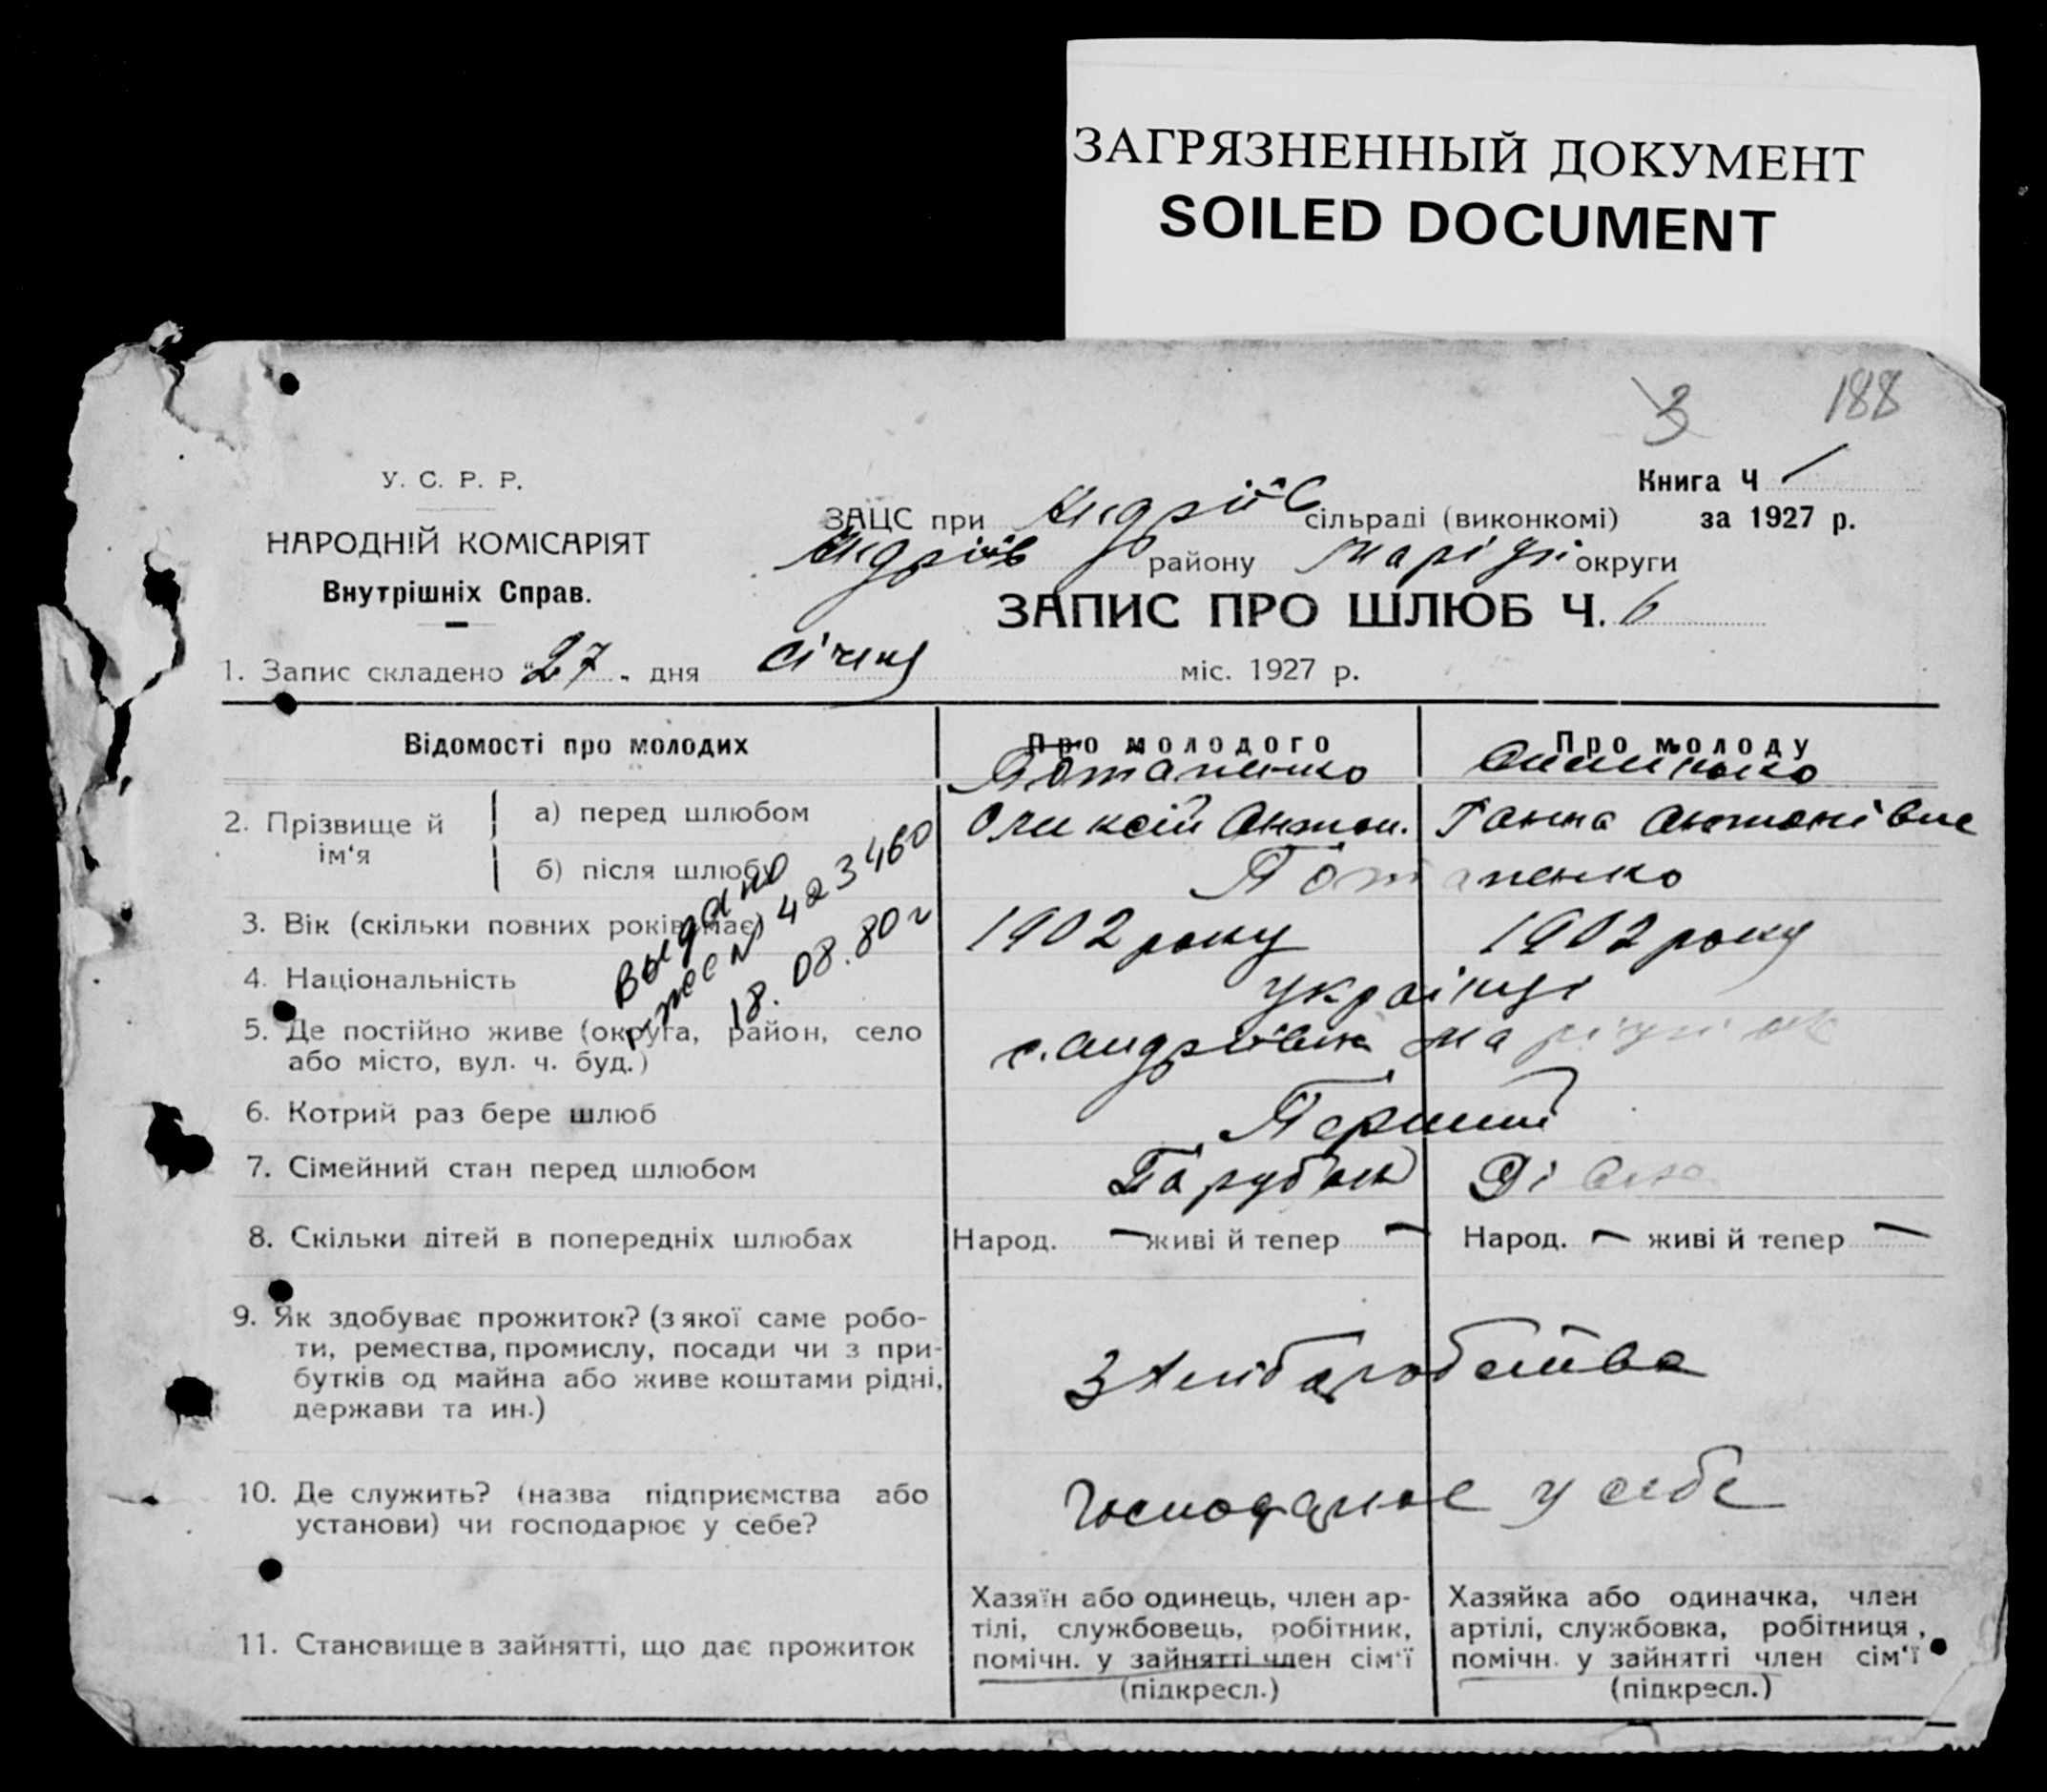 ЗАГРЯЗНЕННЫЙ ДОКУМЕНТ
SOILED DOCUMENT
3 188
У. С. Р. Р.
НАРОДНІЙ КОМІСАРІЯТ
Внутрішніх Справ.
Книга Ч 1
за 1927 р.
ЗАЦС при Андріїв сільраді (виконкомі)
Андріїв району Маріуп округи
ЗАПИС ПРО ШЛЮБ Ч. 6
1. Запис складено "27" дня січня міс. 1927 р.
Відомості про молодих Про молодого Про молоду
2. Прізвище й ім'я
а) перед шлюбом Потапенко
Олексій Антон. Ганна Антонівна
б) після шлюбу Потапенко
3. Вік (скільки повних років має) 1902 року 1902 року
4. Національність Українці
5. Де постійно живе (округа, район, село
або місто, вул. ч. буд.) с. Андріївка
6. Котрий раз бере шлюб Перший
7. Сімейний стан перед шлюбом Парубок Дівка
8. Скільки дітей в попередніх шлюбах Народ. — живі й тепер — Народ. — живі й тепер —
9. Як здобуває прожиток? (з якої саме робо-
ти, ремества, промислу, посади чи з при-
бутків од майна або живе коштами рідні,
держави та ин.)
З хліборобства
10. Де служить? (назва підприємства або
установи) чи господарює у себе?
Господарює у себе
11. Становище в зайнятті, що дає прожиток
Хазяїн або одинець, член ар-
тілі, службовець, робітник,
помічн. у зайнятті член сім'ї
(підкресл.)
Хазяйка або одиначка, член
артілі, службовка, робітниця,
помічн. у зайнятті член сім'ї
(підкресл.)
Выдано
№ 423460
18. 08. 80 г